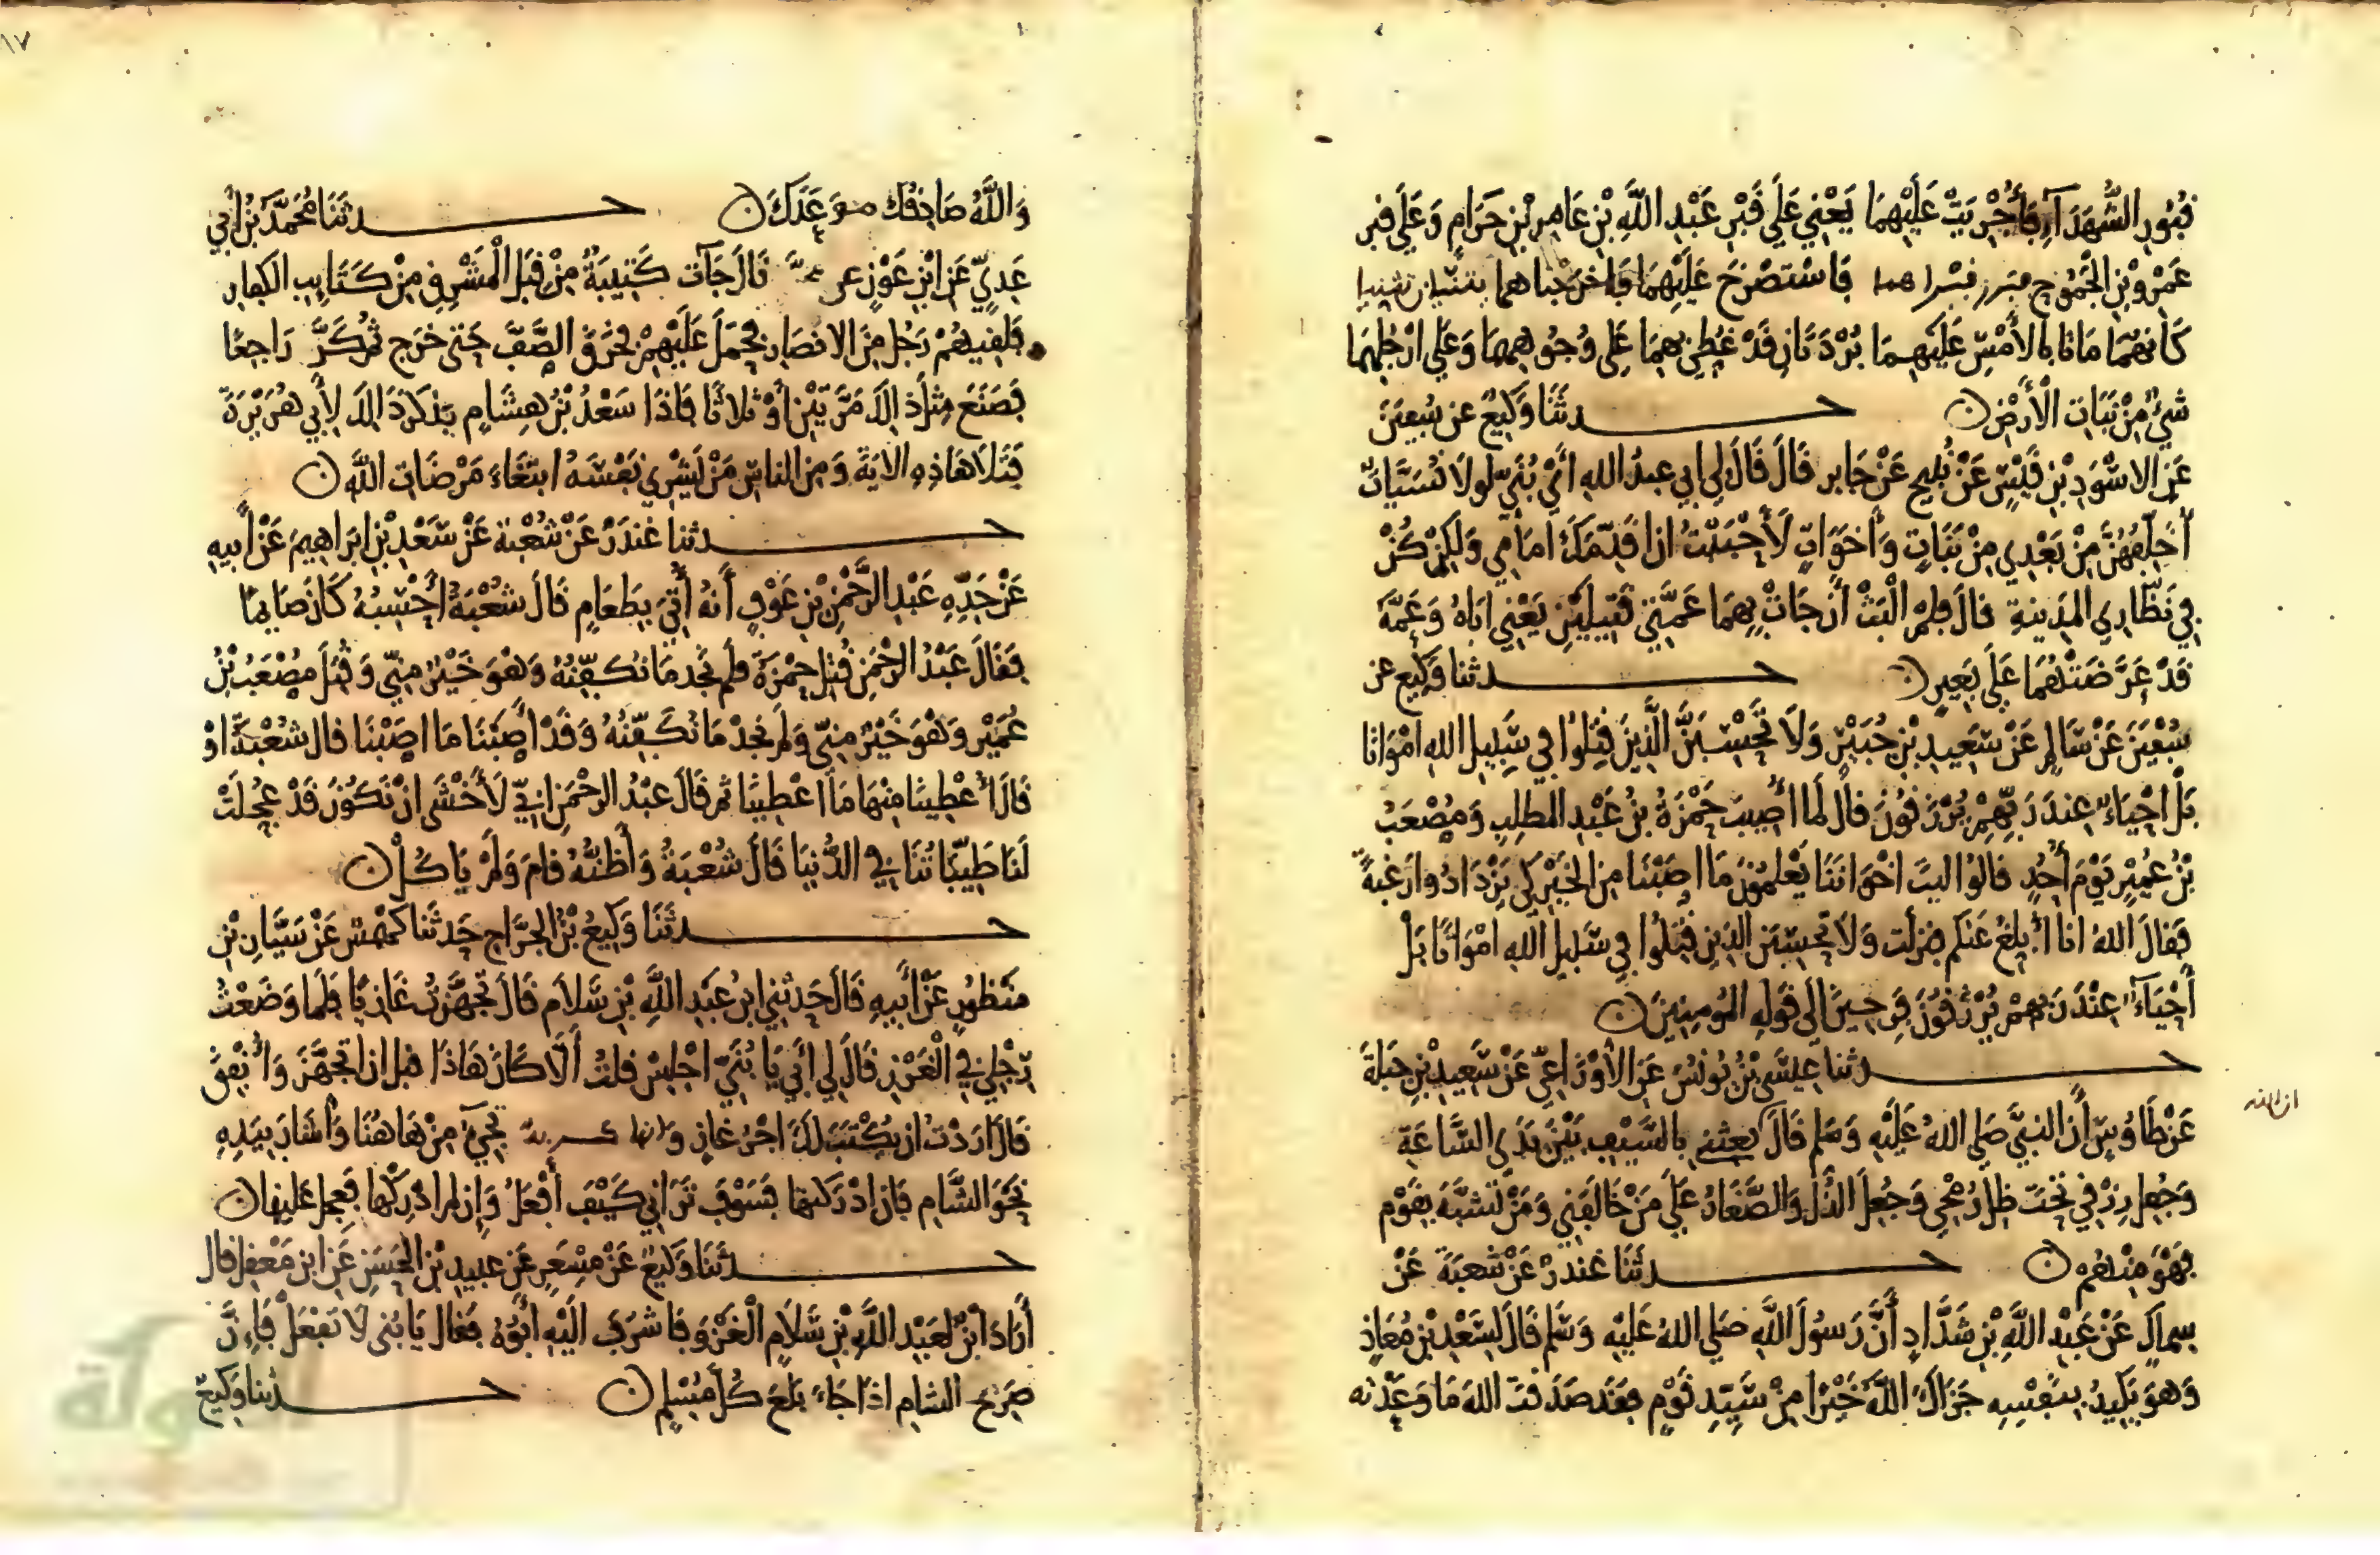 قُبُورِ الشُّهَدَآءِ فَأُجْرِيَتْ عَلَيْهِمَا يَعْنِي عَلَى قَبْرِ عَبْدِ اللَّهِ بْنِ عَامِرِ بْنِ حَرَامٍ وَعَلَى قبر
عَمْرِو بْنِ الْجَمُوحِ فَاسْتُصْرِخَ عَلَيْهِمَا فَأخرجناهما يتثنيان تثنيا
كَأَنهُمَا مَاتَا بِالأَمْسِ عَلَيهِمَا بُرْدَتَانِ قَدْ غُطِيَ بِهِمَا عَلَى وُجُوهِهِمَا وَعَلَى ارْجُلِهِمَا
شيْءٌ مِنْ نَبَاتِ الْأَرْضِ حدثَنَا وَكِيعٌ عن سُفيَنَ
عَنِ الاسْوَدِ بْنِ قَيْسٍ عَنْ نُبَيحٍ عَنْ جَابِر قَالَ قَالَ لِي ابي عبدُ اللهِ أيْ بُنَيَّ لولا نُسَيَّاتٌ
أُخَلِّفُهُنَّ مِنْ بَعْدِي مِنْ بَنَاتٍ وَأَخَوَاتٍ لَأَحْبَبْتُ ان اقَدِّمَكَ امَامِي وَلَكِنْ كُنْ
فِي نَظَّارِي المَدِينةِ قَالَ فلم الْبَثْ أَنْ جَاتْ بِهِمَا عَمَّتِي قَتِيلَيْنِ يَعْنِي ابَاهُ وَعَمَّهُ
قَدْ عَرَّضَتْهُمَا عَلَى بَعِيرٍ حدثنا وَكِيع عن
سُفْيَنَ عَنْ سَالِمٍ عَنْ سَعِيدِ بْنِ جُبَيْرٍ وَلَا تَحْسِبَنَّ الَّذِينَ قُتِلُوا فِي سَبِيلِ اللهِ امْوَاتًا
بَلْ احْيَاءٌ عِندَ رَبِّهِمْ يُرْزَقُونَ قالَ لَمَا أُصِيبَ حَمْزَةُ بْنُ عَبْدِ المطلِبِ وَمُصْعَبُ
بْنُ عُمَيْرٍ يَوْمَ أُحُدٍ قَالُوا ليتَ اخْوَانَنَا يَعْلَمُونَ مَا اصَبْنَا مِنَ الخَيْرِ كَي يَزْدَادُوا رَغبةً
فقَالَ اللهُ انا أُبلِغُ عَنكم فنزلت وَلَا تَحسِبَنَ الذينَ قُتِلُوا فِي سَبِيلِ اللهِ امْوَاتًا بَلْ
أَحْيَآءٌ عِنْدَ رَبهِمْ يُرْزَقُونَ فَرِحِينَ الَى قَولِهِ المُومِنِينَ
حدثنا عيسَى بْنُ يُونُسَ عَنِ الأَوْزَاعِيِّ عَنْ سَعِيدِ بْنِ جَبَلَةَ
عَنْ طَاوُسٍ أَنَّ النبِيَّ صَلى اللهُ عَلَيْهِ وَسَلم قَالَ بعثني بِالسَّيْفِ بَيْنَ يَدَيِ السَّاعَةِ
ان الله
وَجُعِل رِزْقِي تَحْتَ ظِلِّ رُمْحِي وَجُعِلَ الذُّلُ وَالصَّغَارُ عَلَى مَنْ خَالَفَنِي وَمَنْ تَشَبَّهَ بِقَوْمٍ
فَهْوَ مِنْهُمْ حدثَنَا غُندَرٌ عَنْ شُعْبَةَ عَنْ
سِماكٍ عَنْ عَبْدِ اللَّهِ بْنِ شَدَّادٍ أَنَّ رَسُولَ اللَّهِ صَلَى اللهُ عَلَيْهِ وَسَلم قَالَ لِسَعْدِ بْنِ مُعَاذٍ
وَهوَ يَكِيدُ بِنَفْسِهِ جَزَاكَ اللَّهُ خَيْرًا مِنْ سَيِّدِ قَوْمٍ فقد صَدَقْتَ اللهَ مَا وَعَدْته
١٧
وَاللَّهُ صَادِقُكَ مو عَدَكَ حدثَنَا مُحَمَّدُ بْنُ أَبِي
عَدِيٍّ عَنِ ابْنِ عَوْنٍ عن قَالَ جَآت كَتِيبَةٌ مِنْ قِبَلِ الْمَشْرِقِ مِنْ كَتَايِبِ الكفار
فَلقِيَهُمْ رَجُل مِنَ الانصَارِ فحَمَلَ عَلَيْهِمْ فخَرَقَ الصَّفَّ حَتى خَرَج ثُمَّ كَرَّ رَاجِعًا
فَصَنَعَ مِثلَ ذَلِكَ مَرَّتَيْنِ أَوْ ثَلاثًا فَإذَا سَعْدُ بْنُ هِشَامٍ يَذكرُ ذَلِكَ لِأَبِي هُرَيْرَةَ
فَتَلَا هَاذِهِ الايَةَ وَمِنَ الناسِ مَنْ يَشْرِي نَفْسَهُ ابْتِغَاءَ مَرْضَاتِ اللَّهِ
حدثنا غُندَرٌ عَنْ شُعْبَةَ عَنْ سَعْدِ بْنِ ابْرَاهِيمَ عَنْ أَبِيهِ
عَنْ جَدِّهِ عَبْدِ الرَّحْمَنِ بْنِ عَوْفٍ أَنهُ أُتِيَ بِطَعَامٍ قَالَ شُعْبَةُ أَحْسِبُهُ كَانَ صَايِمًا
فَقَالَ عَبْدُ الرحْمَنِ قُتِلَ حَمْزَةُ فلم نجد مَا نُكَفِّنُهُ وَهْوَ خَيْرٌ مِنِّي وَقُتِلَ مُصْعَبُ بْنُ
عُمَيْرٍ وَهْوَ خَيْرٌ مِنِّي وَلَمْ نَجِدْ مَا نُكَفِّنُهُ وَقَدْ اصَبْنَا مَا اصَبْنَا قال شُعْبَةُ اوْ
قَالَ أُعْطِينَا مِنْهَا مَا اعْطِينَا ثم قَالَ عَبْدُ الرحْمَنِ إِنِّي لَأَخْشَى انْ تَكُونَ قَدْ عُجِلَتْ
لَنَا طَيِّبَاتُنَا فِي الدُّنْيَا قَالَ شُعْبَةُ وَأَظنُّهُ قَامَ وَلَمْ يَاكُلْ
حدثَنَا وَكِيعُ بْنُ الجَرَّاحِ حَدثَنَا كَهْمَسٌ عَنْ سَيَّارِ بْنِ
مَنظُورٍ عَنْ أَبِيهِ قَالَ حَدثني ابنُ عَبدِ اللَّهِ بْنِ سَلامٍ قَالَ تَجَهَّزتُ غَازِيًا فَلَما وَضَعْتُ
رِجْلِي فِي الْغَرْزِ قَالَ لِي أَبِي يَا بُنَيِّ اجْلِسْ قلتُ أَلَا كَانَ هَاذَا قبل ان اتَجَهَّزَ وَأُنْفِقَ
قَالَ ارَدْتُ ان يُكْتَبَ لَكَ اجْرُ غَازٍ وَانها تَجِيءُ مِنْ هَاهُنَا وَأَشَارَ بِيَدِهِ
نَحْوَ الشَّامِ فَإِن ادْرَكتها فَسَوْفَ تَرَانِي كَيْفَ أَفْعَلُ وَإِن لم ادْرِكْها فَعجل عليها
حدثَنَا وَكِيعٌ عَنْ مِسْعَرٍ عَنْ عبيدِ بْنِ الحَسَنِ عَنِ ابنِ مَعْقِلٍ قال
أَرَادَ ابْنٌ لِعَبْدِ اللَّهِ بْنِ سَلَامٍ الْغَزْوَ فَاشْرَفَ الَيْهِ أَبُوهُ فَقَال يَا بُنَى لَا تَفْعَلْ فَإِنَّ
صَرِيخَ الشام اذَا جَاءَ بَلَغَ كُلَّ مُسْلِمٍ حدثنا وَكِيعٌ